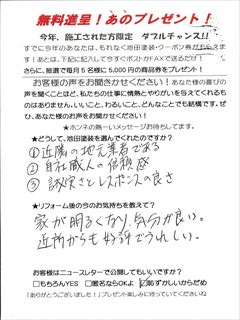 無料進呈！あのプレゼント！
今年、施工された方限定　ダブルチャンス!!
すでに今年のあなたは、もれなく池田塗装・クーポン券がもらえます！あとは、下記に記入して今すぐポストかFAXで送るだけ！
さらに、抽選で毎月6名様に5,000円の商品券をプレゼント！
お客様の声をお聞きかせください！あなた様の喜びの声を聞くことほど、私たちの仕事に情熱とやりがいを与えてくれるものはありません。いいこと、わるいこと、どんなことでも結構です。ぜひ、あなた様のお声をお聞かせください！
★ホンネの熱ーいメッセージお待ちしてます。
★どうして、池田塗装を選んでくれたのですか？
①近隣の地元業者である
②自社職人の信頼感
③誠実さとレスポンスの良さ
★リフォーム後のあなたの気持ちを教えてください？
家が明るくなり、気分が良い。
近所からも好評でうれしい。
お客様はニュースレターで公開してもいいですか？
□もちろんYES　□匿名ならOKよ　☑恥ずかしいからだめ
「ありがとうございました！」プレゼント楽しみに待っていてくださいね